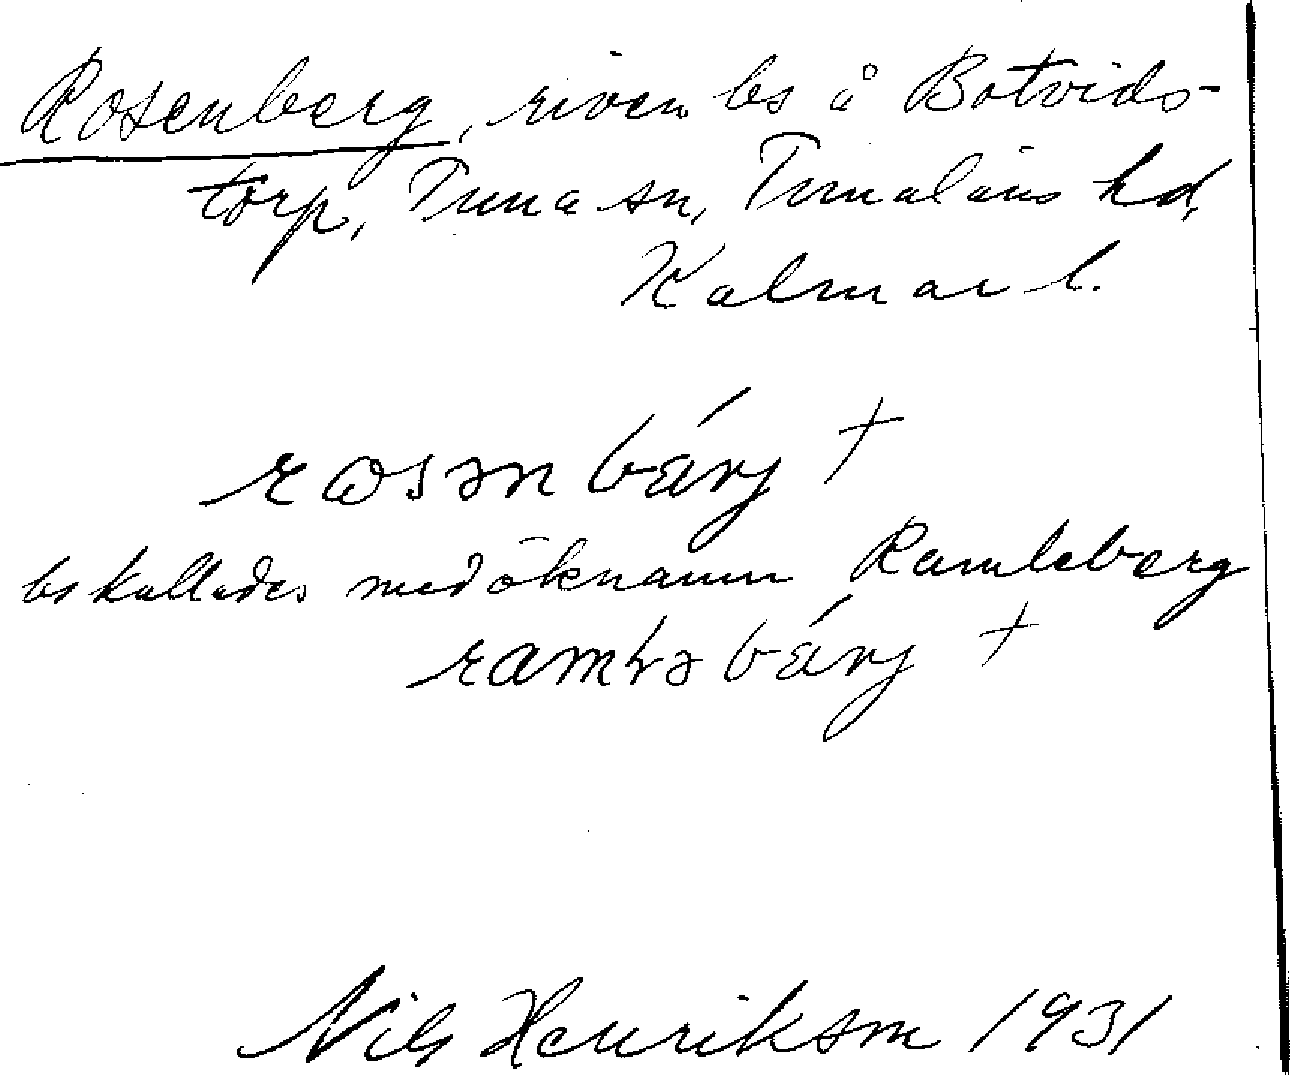 Rosenberg, riven bs å Botvids-
torp, Tuna sn, Tunaläns hd,
Kalmar l.
rosənbárj +
bs kallades med öknamn Ramleberg
bárj +
Nils Henrikson 1931